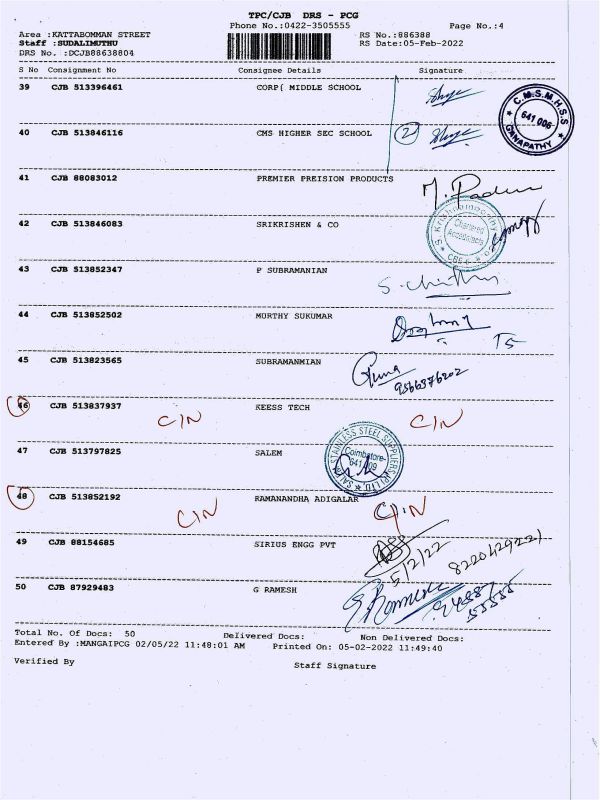 TPC/CJB DRS - PCG
Phone No.:0422-3505555 Page No.:4
Area :KATTABOMMAN STREET RS No.:886388
Staff :SUDALIMUTHU RS Date:05-Feb-2022
DRS No. :DCJB88638804
S No Consignment No Consignee Details Signature
39 CJB 513396461 CORP( MIDDLE SCHOOL
C.M.S.M.H.S.S
641 006
GANAPATHY
40 CJB 513846116 CMS HIGHER SEC SCHOOL 2
41 CJB 88083012 PREMIER PREISION PRODUCTS
42 CJB 513846083 SRIKRISHEN & CO
Chartered
Accountants
43 CJB 513852347 P SUBRAMANIAN
44 CJB 513852502 MURTHY SUKUMAR
45 CJB 513823565 SUBRAMANMIAN
9566376202
46 CJB 513837937 KEESS TECH
CIN CIN
47 CJB 513797825 SALEM
SALEM STAINLESS STEEL SUPPLIERS (P) LTD
Coimbatore-
641 009
48 CJB 513852192 RAMANANDHA ADIGALAR
CIN CIN
49 CJB 88154685 SIRIUS ENGG PVT
5/2/22
8220429221
50 CJB 87929483 G RAMESH
94887
55555
Total No. Of Docs: 50 Delivered Docs: Non Delivered Docs:
Entered By :MANGAIPCG 02/05/22 11:48:01 AM Printed On: 05-02-2022 11:49:40
Verified By Staff Signature